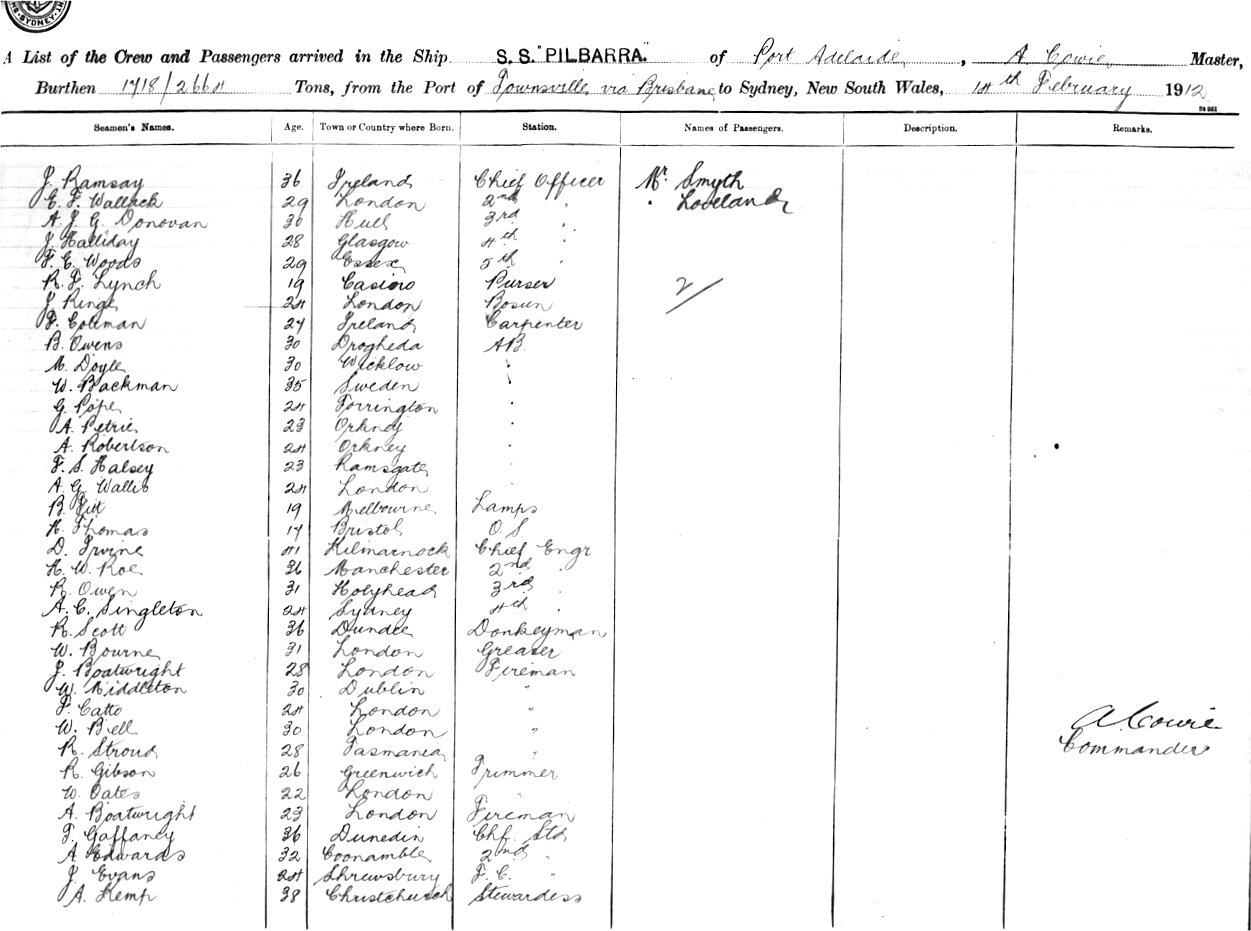 SYDNEY
A List of the Crew and Passengers arrived in the Ship S.S. "PILBARRA" of Port Adelaide, A Cowie Master,
Burthen 1718/2664 Tons, from the Port of Townsville via Brisbane to Sydney, New South Wales, 14th February 1912
Seamen's Names. Age. Town or Country where Born. Station. Names of Passengers. Description. Remarks.
J. Ramsay 36 Ireland Chief Officer Mr. Smyth
E. F. Wallack 29 London 2nd " " Loveland
A. J. G. Donovan 30 Hull 3rd "
J. Halliday 28 Glasgow 4th "
F. E. Woods 29 Essex 5th "
R. F. Lynch 19 Casino Purser 2/
J. Ringe 24 London Bosun
F. Coleman 27 Ireland Carpenter
B. Owens 30 Drogheda AB.
M. Doyle 30 Wicklow "
W. Backman 35 Sweden "
G. Pope 24 Torrington "
A. Petrie 23 Orkney "
A. Robertson 24 Orkney "
F. S. Halsey 23 Ramsgate "
A. G. Wallis 24 London
B. 19 Melbourne Lamps
H. Thomas 17 Bristol O.S
D. Irvine 41 Kilmarnock Chief Engr
H. W. Roe 36 Manchester 2nd "
R. Owen 31 Holyhead 3rd "
A. C. Singleton 24 Sydney 4th "
R. Scott 36 Dundee Donkeyman
W. Bourne 31 London Greaser
J. Boatwright 28 London Fireman
W. Middleton 30 Dublin "
F. Catto 24 London "
W. Bell 30 London " A. Cowie
R. Stroud 28 Tasmania " Commander
R. Gibson 26 Greenwich Trimmer
W. Oates 22 London "
A. Boatwright 23 London Fireman
F. Gaffaney 36 Dunedin Chf. Std
A Edwards 32 Coonamble 2nd "
J Evans 24 Shrewsbury F. C. "
A. Kemp 38 Christchurch Stewardess